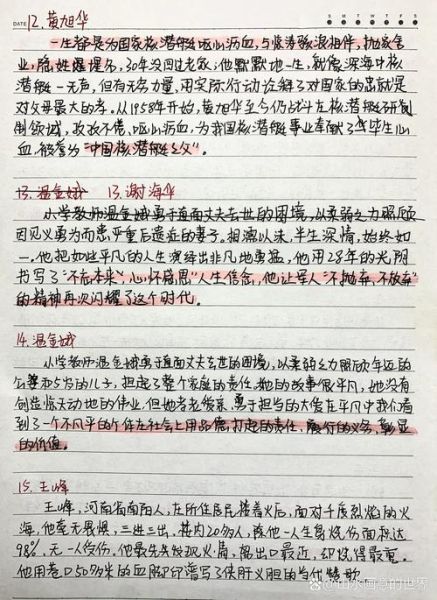 DATE 12. 黄旭华
S M T W T F S
一生都是为国家核潜艇呕心沥血,与惊涛骇浪相伴,抛家舍
业,隐姓埋名,30年没回过老家,他默默地一生,就像深海中核
潜艇一无声,但有无穷力量,用实际行动诠释了对国家的忠就是
对父母最大的孝。从1958年开始,黄旭华至今仍战斗在核潜艇研制
领域,孜孜不倦,呕心沥血,为我国核潜艇事业奉献了毕生心
血,被誉为"中国核潜艇之父"。
13. 温金娥 13. 谢海华
小学教师温金娥勇于直面丈夫去世的困境,以柔弱之力照顾
因见义勇为而患严重后遗症的妻子。相濡以沫,半生深情,始终如
一。他把如此平凡的人生演绎出非凡地勇猛,他用28年的光阴
书写了"不忘本来",心怀感恩"人生信念,他让军人"不抛弃,不放弃"
的精神再次闪耀了这个时代。
14. 温金娥
小学教师温金娥勇于直面丈夫去世的困境,以柔弱之力照顾年迈的
公婆和5岁的儿子,担起了整个家庭的责任。她的故事很平凡,她没有
创造惊天动地的伟业,但她孝老爱亲,勇于担当的大爱在平凡中我们看
到了一个不凡平的个体在社会上用品德,打起的责任,履行的义务,彰显
的价值。
15. 王锋
王锋,河南省南阳人,在所住居民楼着火后,面对千度烈焰的火
海,他毫无畏惧,三进三出,楼内20多人,除他一人全身烧伤面积达
98%,无一人受伤,他最先发现火情,离出口最近,却烧得最重。
他用卷口50多米的血脚印谱写了侠肝义胆的当代赞歌